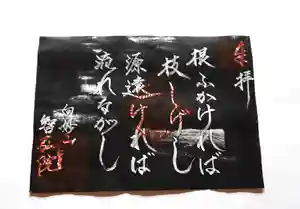 奉拝
根ふかければ
枝しげし
源遠ければ
流れながし
身延山
智寂院